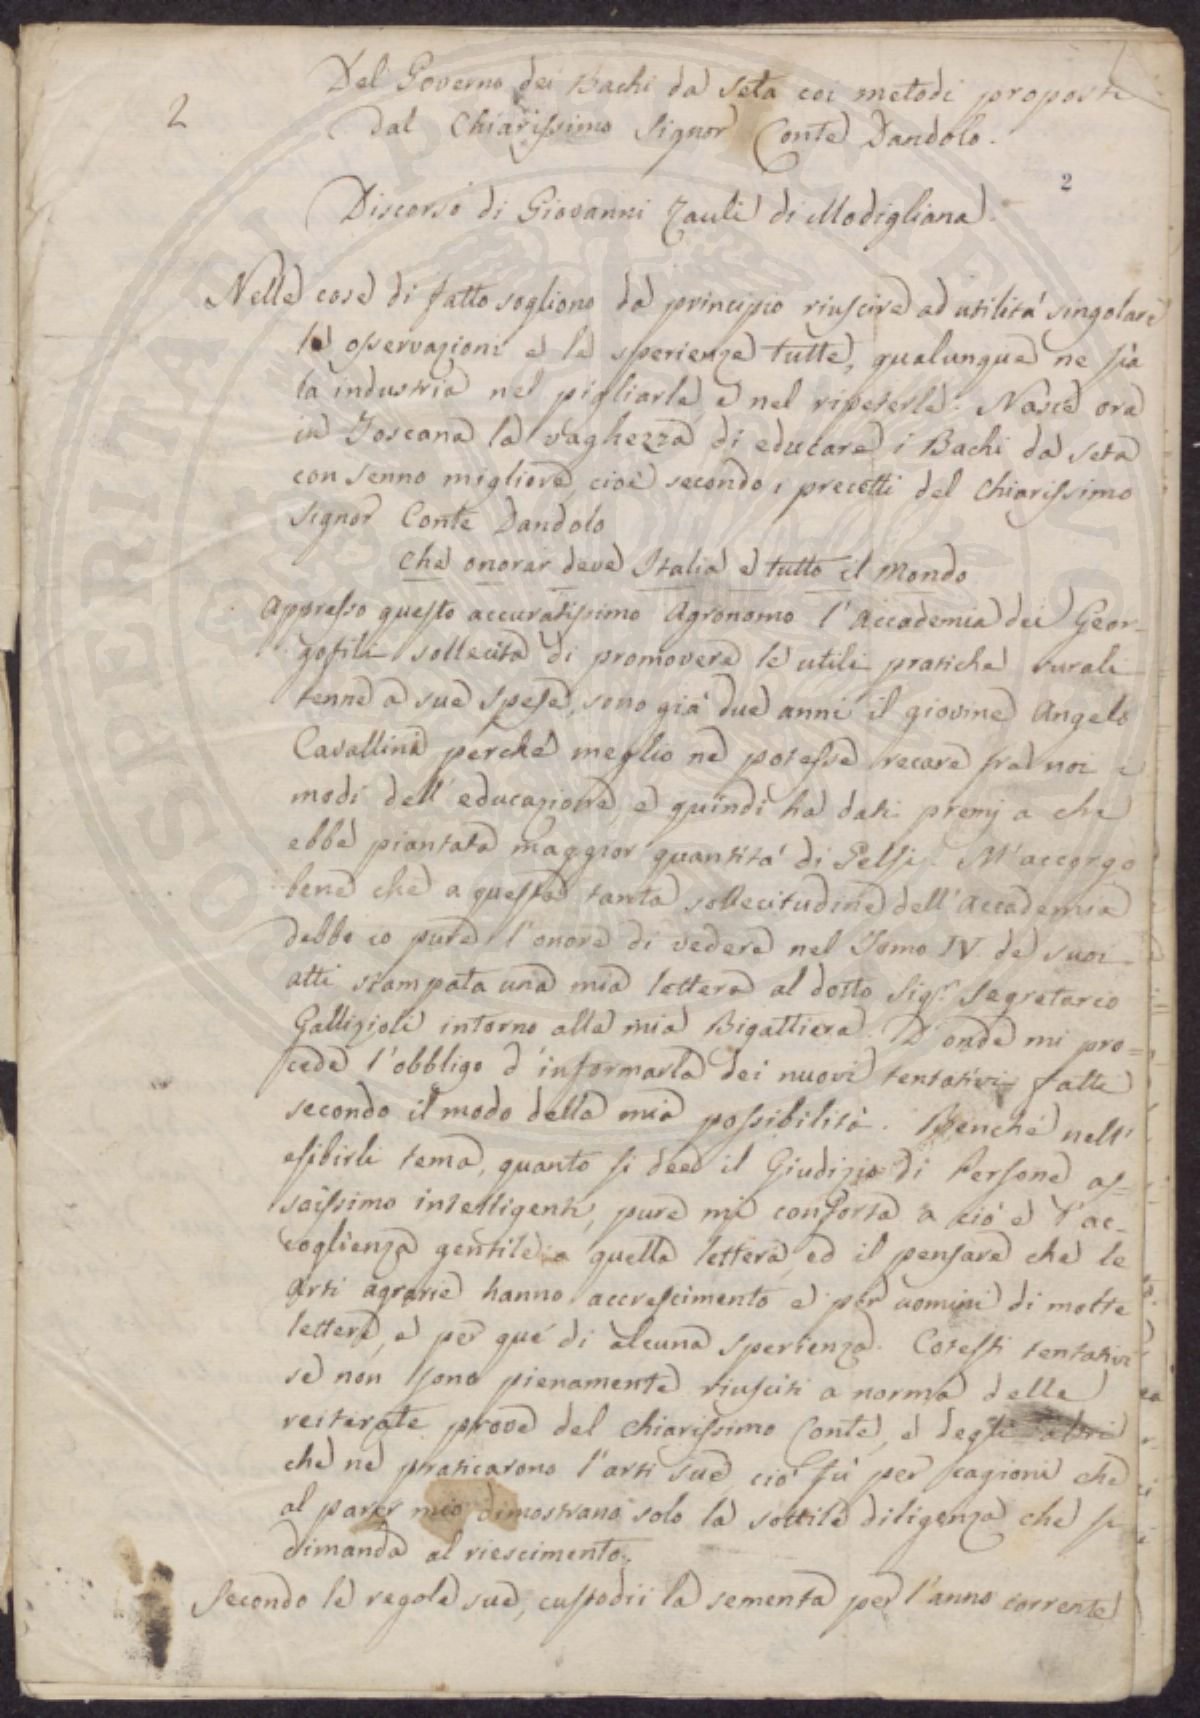 2
Del Governo dei Bachi da Seta coi metodi proposti
dal Chiarissimo Signor Conte Dandolo.
2
Discorso di Giovanni Zauli di Modigliana.
Nelle cose di fatto sogliono da principio riuscire ad utilità singolare
le osservazioni e le sperienze tutte, qualunque ne sia
la industria nel pigliarle e nel ripeterle. Nasce ora
in Toscana la vaghezza di educare i Bachi da seta
con senno migliore, cioè secondo i precetti del chiarissimo
Signor Conte Dandolo
Che onorar deve Italia e tutto il Mondo
Appresso questo accuratissimo Agronomo l'Accademia dei Geor-
gofili sollecita di promovere le utili pratiche rurali
tenne a sue spese, sono già due anni il giovine Angelo
Cavallina perché meglio ne potesse recare fra noi i
modi dell'educazione, e quindi ha dati premj a che
ebbe piantata maggior quantità di Gelsi. M'accorgo
bene che a questa tanta sollecitudine dell'Accademia
debbo io pure l'onore di vedere nel Tomo IV. de suoi
atti stampata una mia lettera al dotto Sigr. Segretario
Gallizioli intorno alla mia Bigattiera. D'onde mi pro=
cede l'obbligo d'informarla dei nuovi tentativi fatti
secondo il modo della mia possibilità. Benché nell'
esibirli tema, quanto si dee il Giudizio di Persone as=
saissimo intelligenti, pure mi conforta a ciò e l'ac-
coglienza gentile a quella lettera, ed il pensare che le
arti agrarie hanno accrescimento e per uomini di molte
lettere, e per quei di alcuna sperienza. Cotesti tentativi
se non sono pienamente riusciti a norma delle
reiterate prove del chiarissimo Conte, e degli altri
che ne praticarono l'arti sue, ciò fù per cagioni che
al parer mio dimostrano solo la sottile diligenza che si
dimanda al riescimento.
Secondo le regole sue, custodii la sementa per l'anno corrente